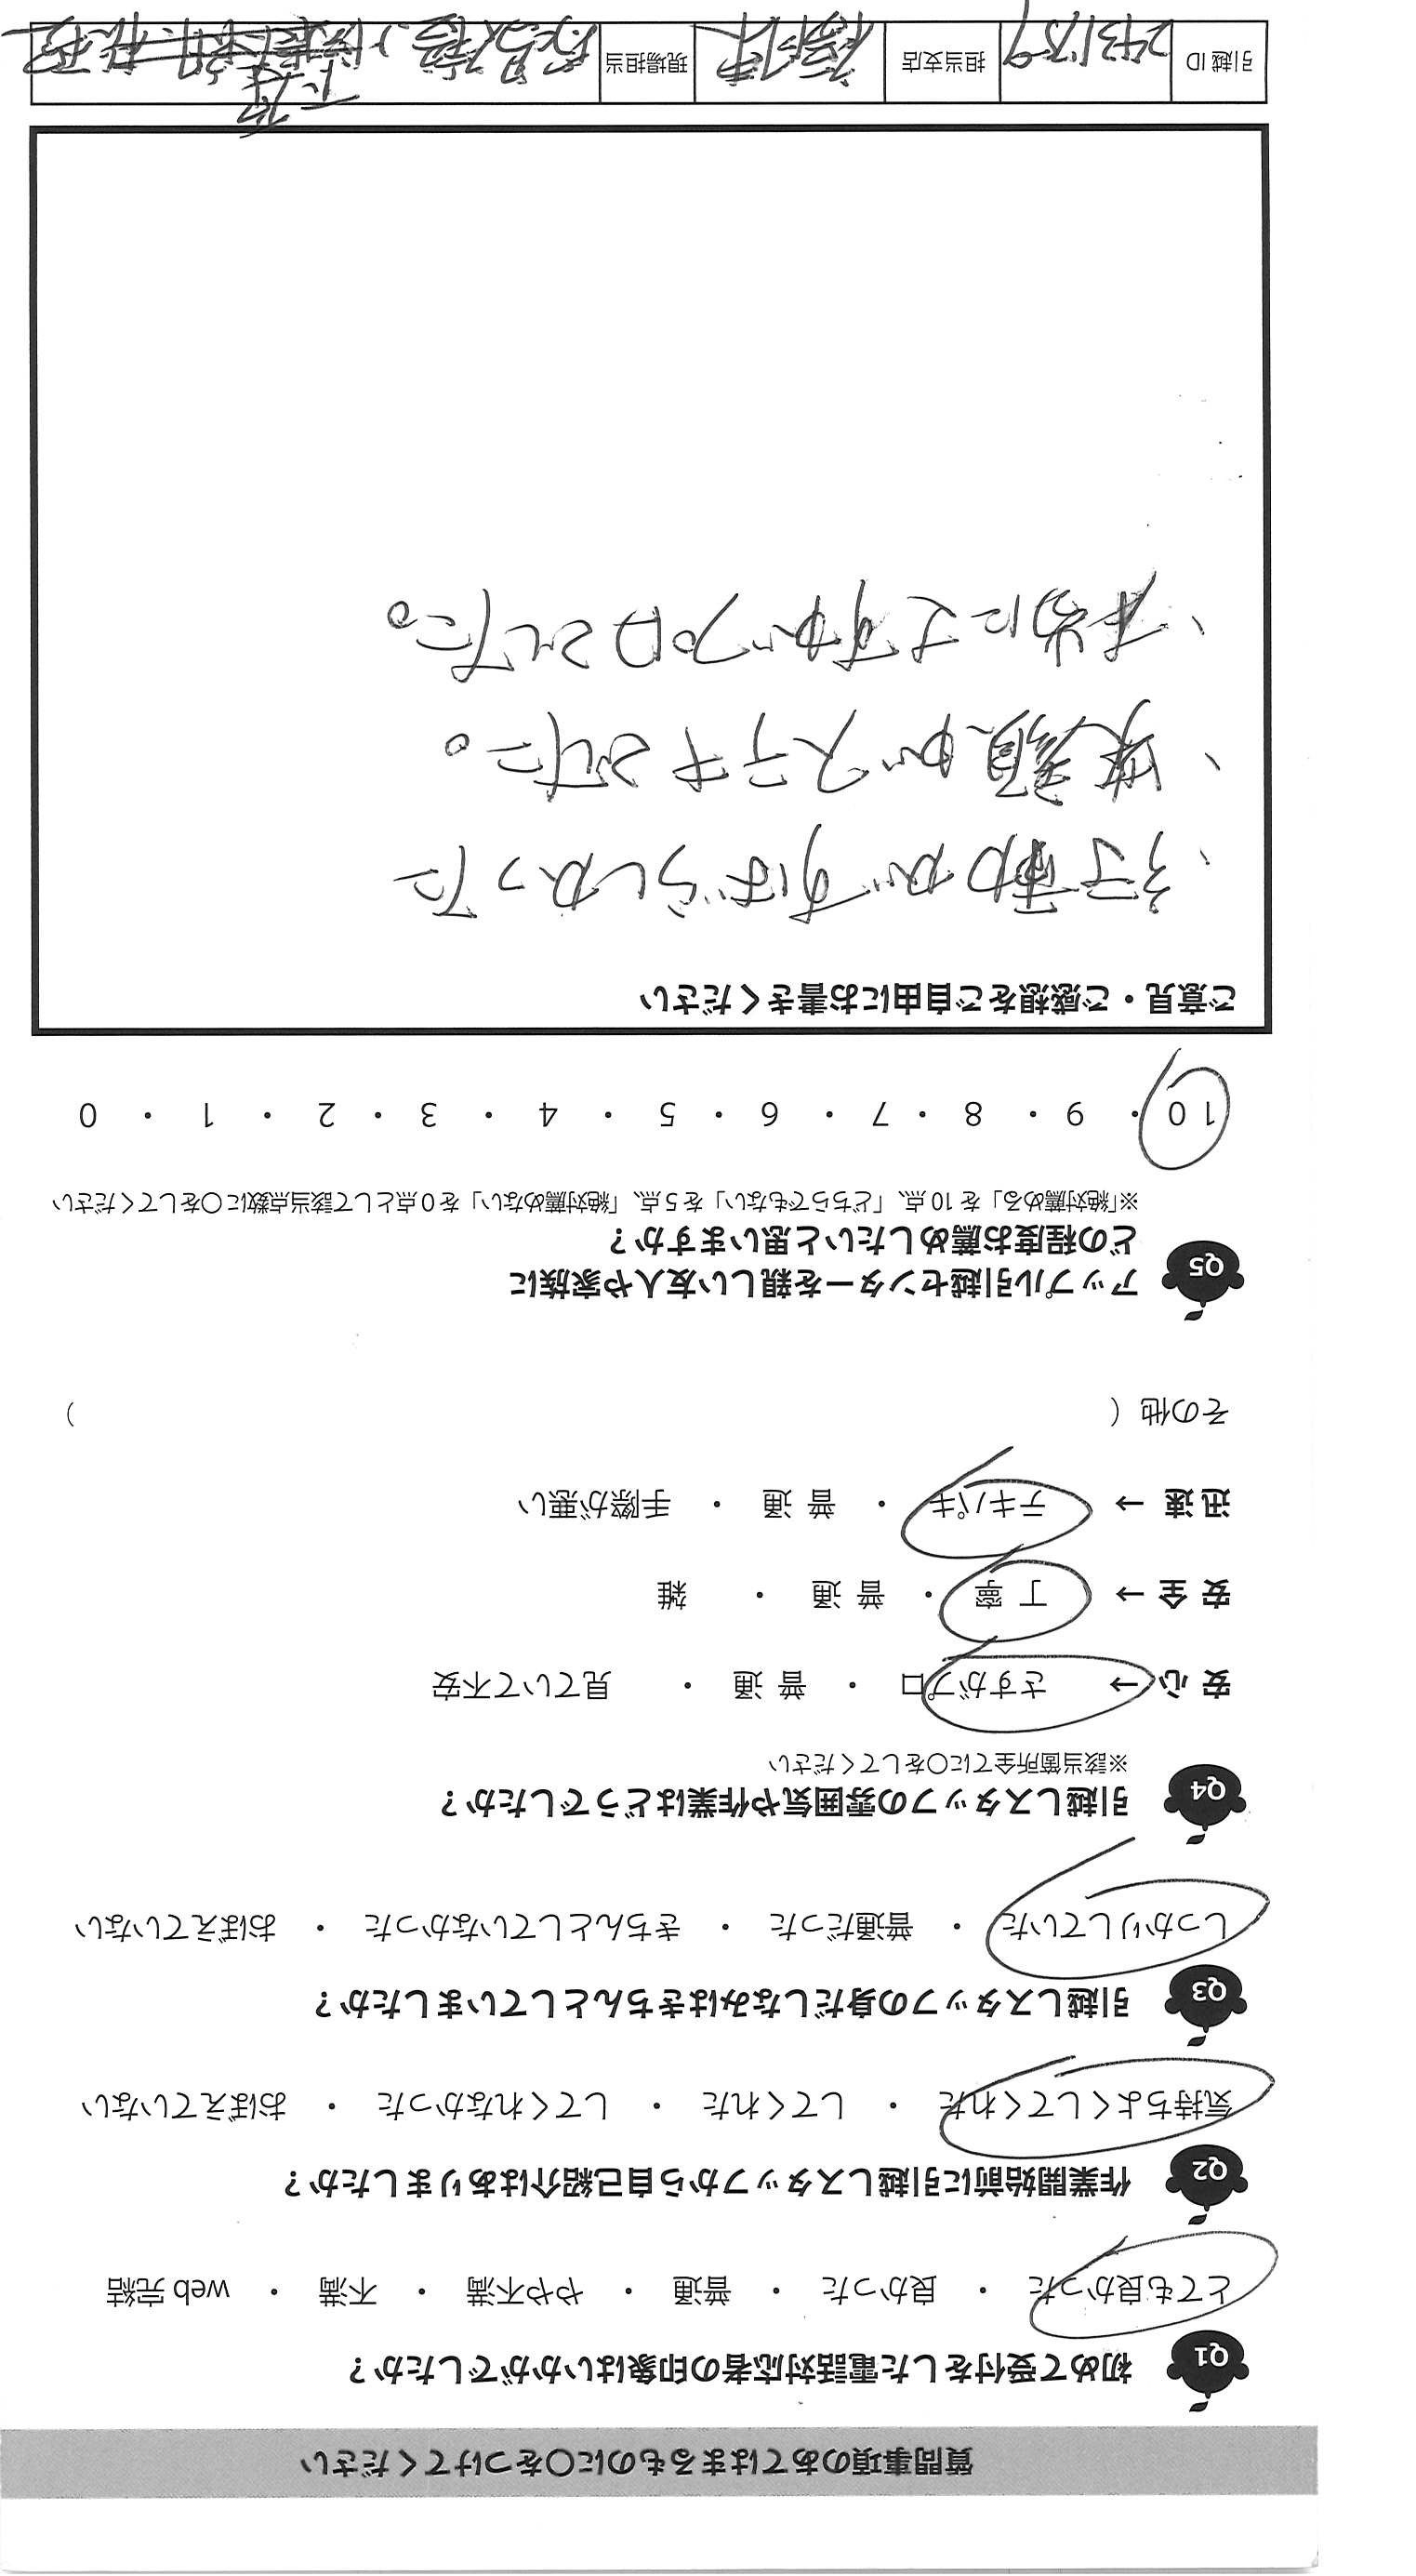 質問事項のあてはまるものに〇をつけてください
Q1 初めて受付をした電話対応者の印象はいかがでしたか？
とても良かった ・ 良かった ・ 普通 ・ やや不満 ・ 不満 ・ web 完結
Q2 作業開始前に引越しスタッフから自己紹介はありましたか？
気持ちよくしてくれた ・ してくれた ・ してくれなかった ・ おぼえていない
Q3 引越しスタッフの身だしなみはきちんとしていましたか？
しっかりしていた ・ 普通だった ・ きちんとしていなかった ・ おぼえていない
Q4 引越しスタッフの雰囲気や作業はどうでしたか？
※該当箇所全てに〇をしてください
安心→ さすがプロ ・ 普通 ・ 見ていて不安
安全→ 丁寧 ・ 普通 ・ 雑
迅速→ テキパキ ・ 普通 ・ 手際が悪い
その他（ ）
Q5 アップル引越センターを親しい友人や家族に
どの程度お薦めしたいと思いますか？
※「絶対薦める」を10点、「どちらでもない」を5点、「絶対薦めない」を0点として該当点数に〇をしてください
10 ・ 9 ・ 8 ・ 7 ・ 6 ・ 5 ・ 4 ・ 3 ・ 2 ・ 1 ・ 0
ご意見・ご感想をご自由にお書きください
、行動がすばらしかった
、笑顔がステキでした。
、本当にさすがプロでした。
引越ID 2431789 担当支店 現場担当